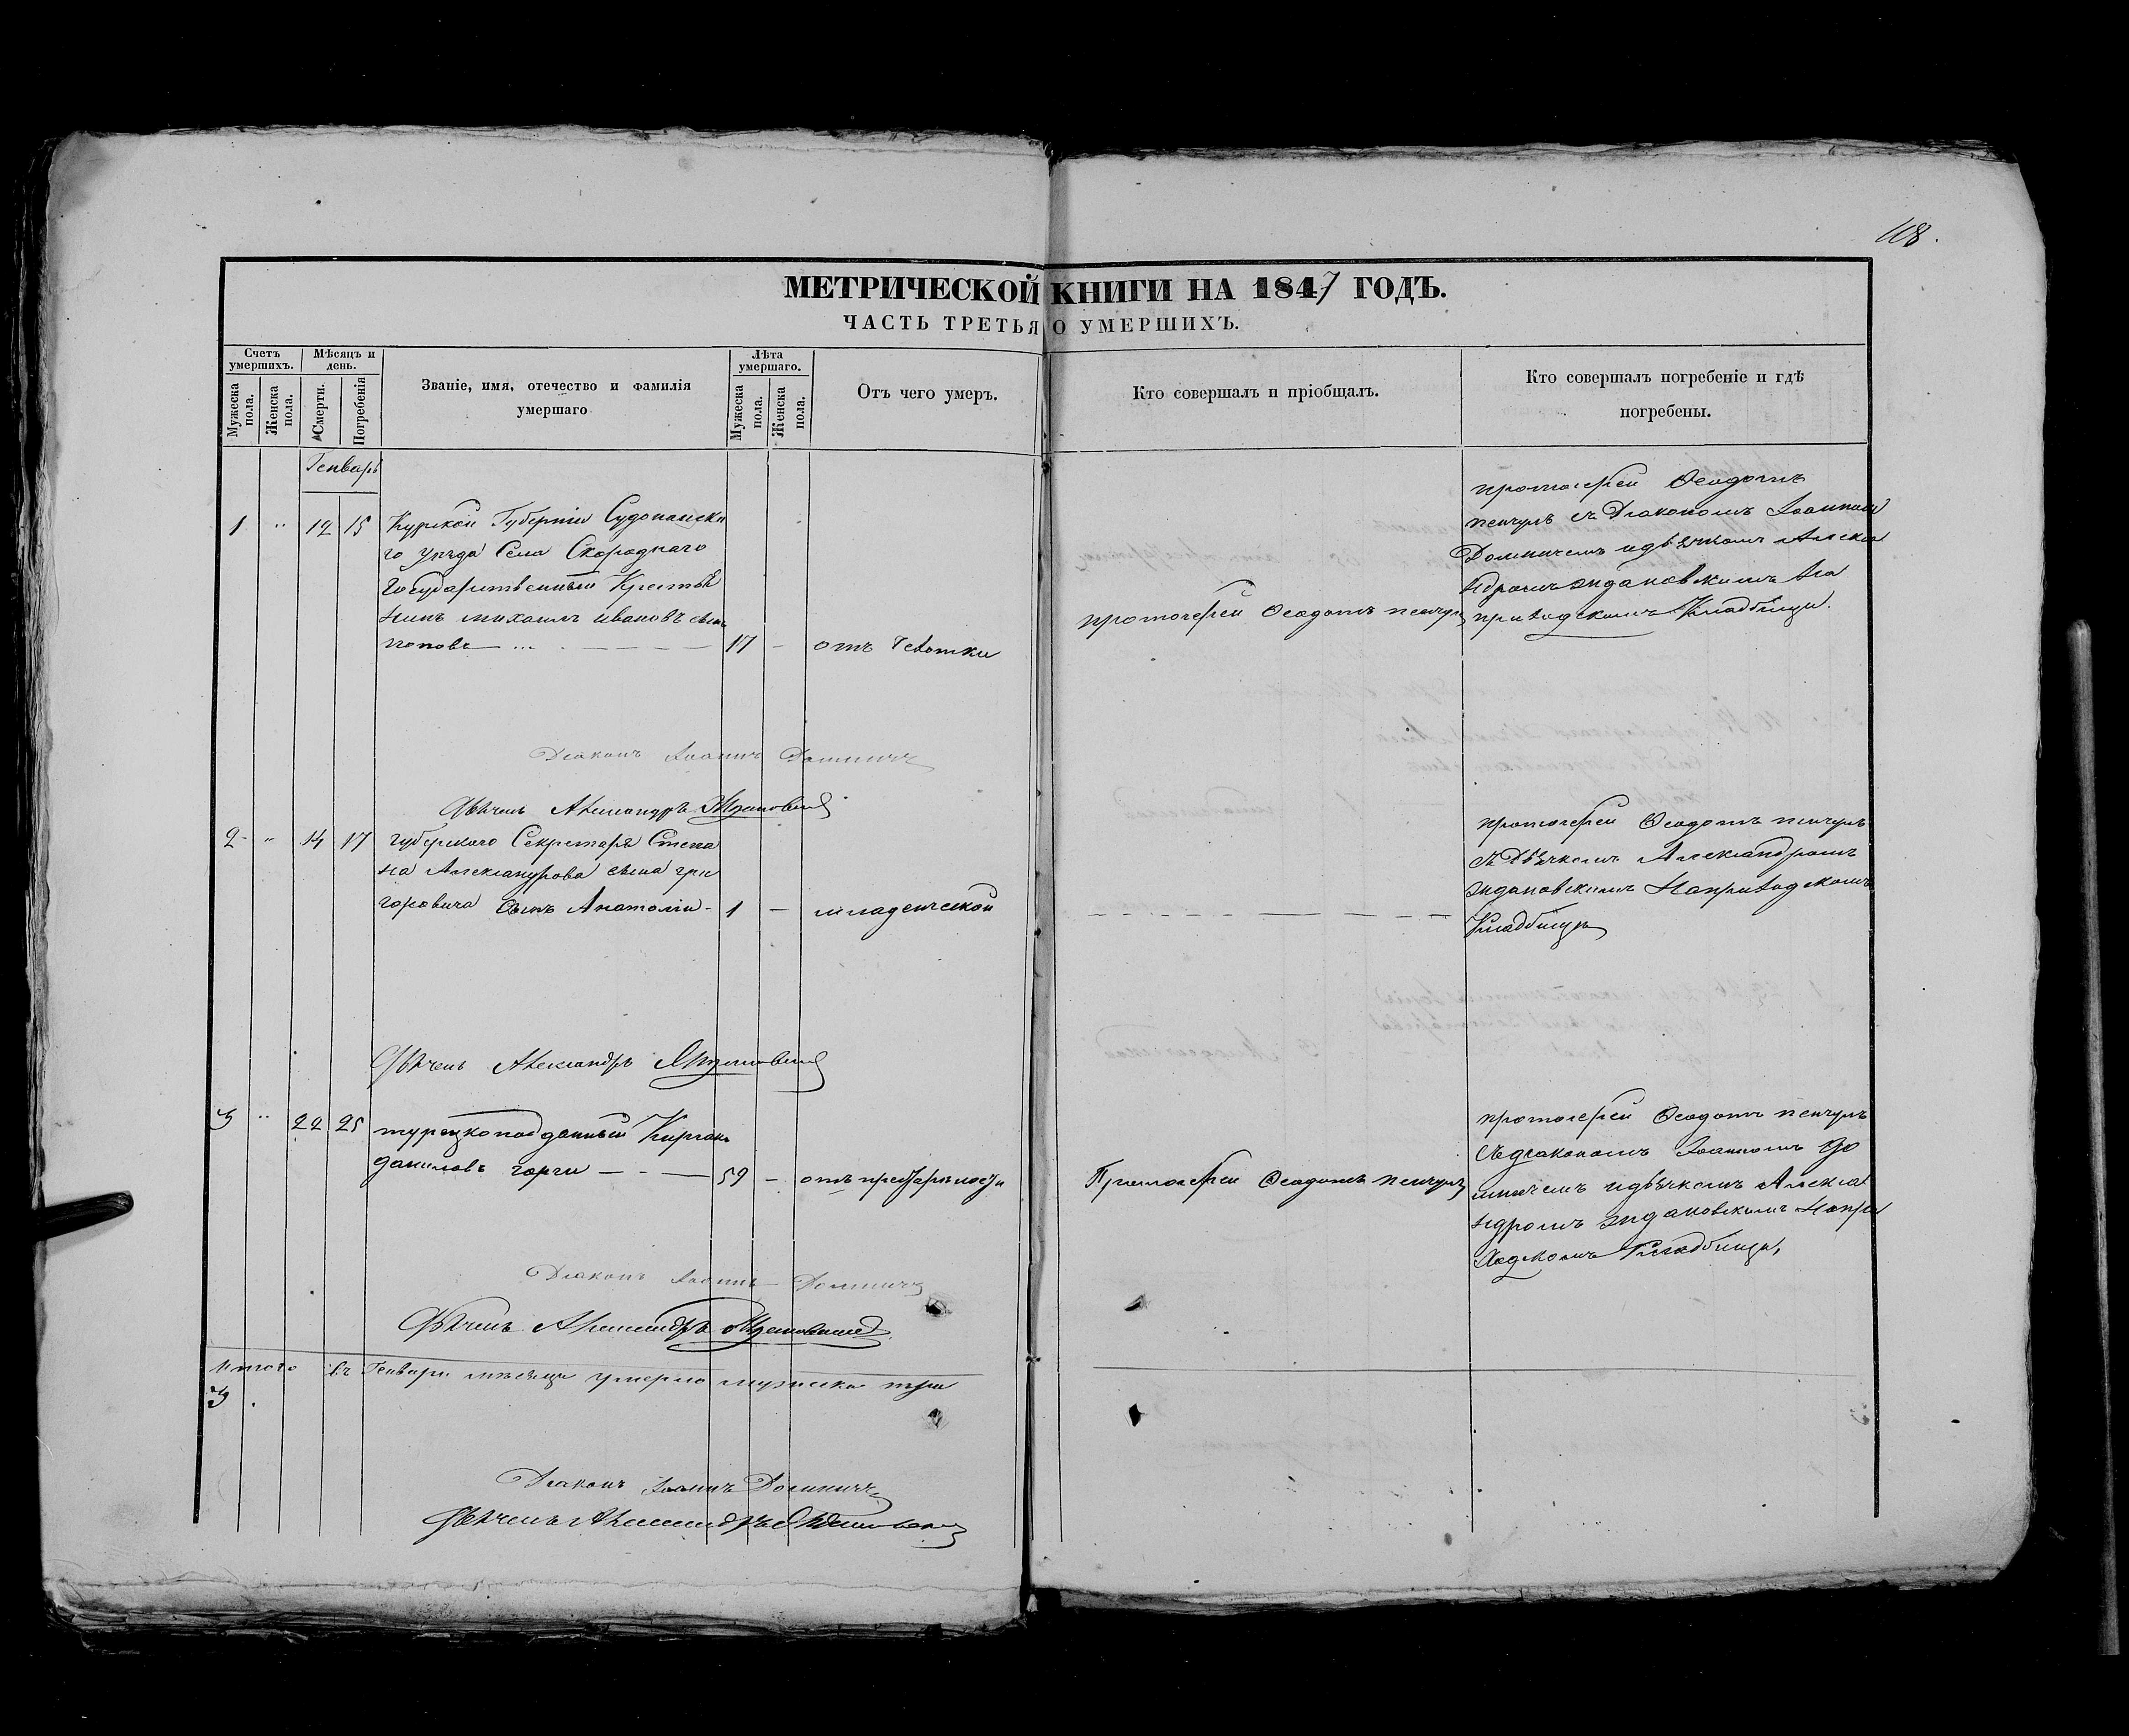 118.
МЕТРИЧЕСКОЙ КНИГИ НА 1847 ГОДЪ.
ЧАСТЬ ТРЕТЬЯ О УМЕРШИХЪ.
Счетъ умершихъ.
Мужеска пола.
Женска пола.
Мѣсяцъ и день.
Смерти.
Погребенія
Званіе, имя, отечество и фамилія
умершаго
Лѣта умершаго.
Мужеска пола.
Женска пола.
Отъ чего умеръ.
Кто совершалъ и пріобщалъ.
Кто совершалъ погребеніе и гдѣ
погребены.
Генварь
1 " 12 15 Курской Губерніи
го уезда Села Скороднаго
Государственный Крестья
нинъ михаилъ ивановъ сынъ
поповъ 17 - отъ
протоіерей Ѳеодотъ пенчулъ
протоіерей Ѳеодотъ
пенчулъ съ Діакономъ Іоанномъ
Доминичемъ идьячкомъ Алекса
ндромъ ждановскимъ на
приходскомъ Кладбищи.
Діаконъ Іоаннъ Доминичъ
Дьячекъ Александръ Ждановскій
2 " 14 17 губерского Секретаря Степа
на Александрова сына гри
горовича сынъ Анатолій - 1 - младенческой
протоіерей Ѳеодотъ пенчулъ
съ Дьячкомъ Александромъ
ждановскимъ Наприходскомъ
Кладбищи
Дьячекъ Александръ Ждановскій
3 " 22 25 турецкоподданный
даниловъ 59 - отъ престарелости
Протоіерей Ѳеодотъ пенчулъ
протоіерей Ѳеодотъ пенчулъ
съдіакономъ Іоанномъ До
миничемъ идьячкомъ Алекса
ндромъ ждановскимъ Напри
ходскомъ Кладбищи,
Діаконъ Іоаннъ Доминичъ
Дьячекъ Александръ Ждановскій
Итого въ Генвари месяце умерло мужеска три
3
Діаконъ Іоаннъ Доминичъ
Дьячекъ Александръ Ждановскій